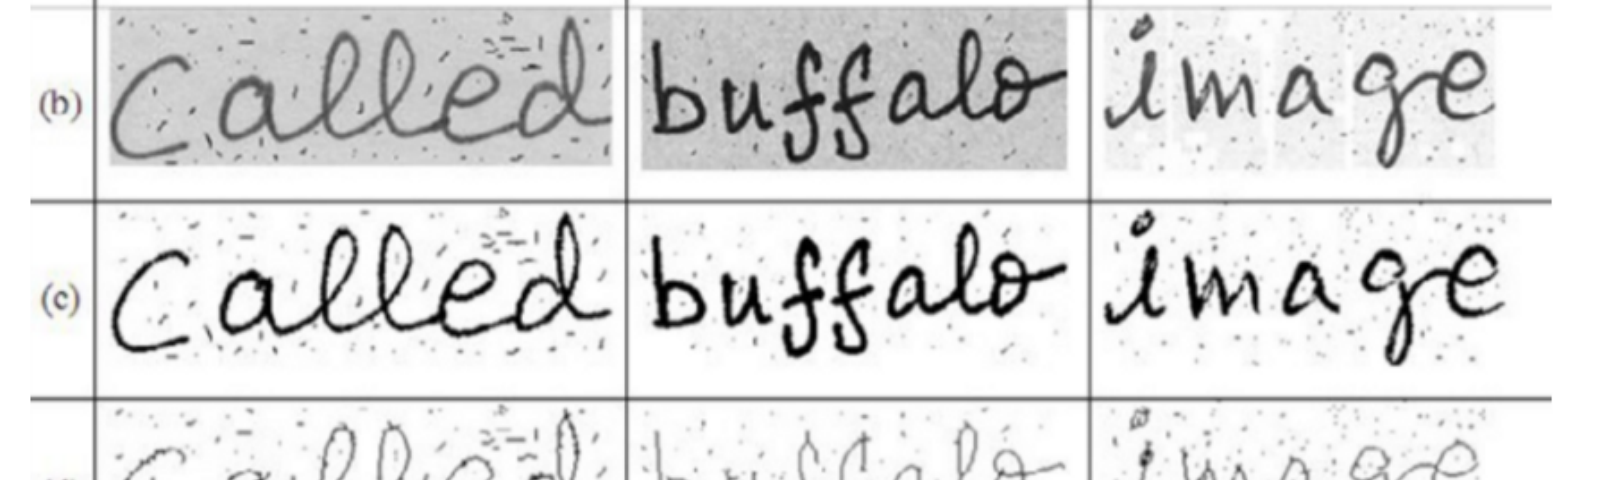 (b) Called buffalo image
(c) Called buffalo image